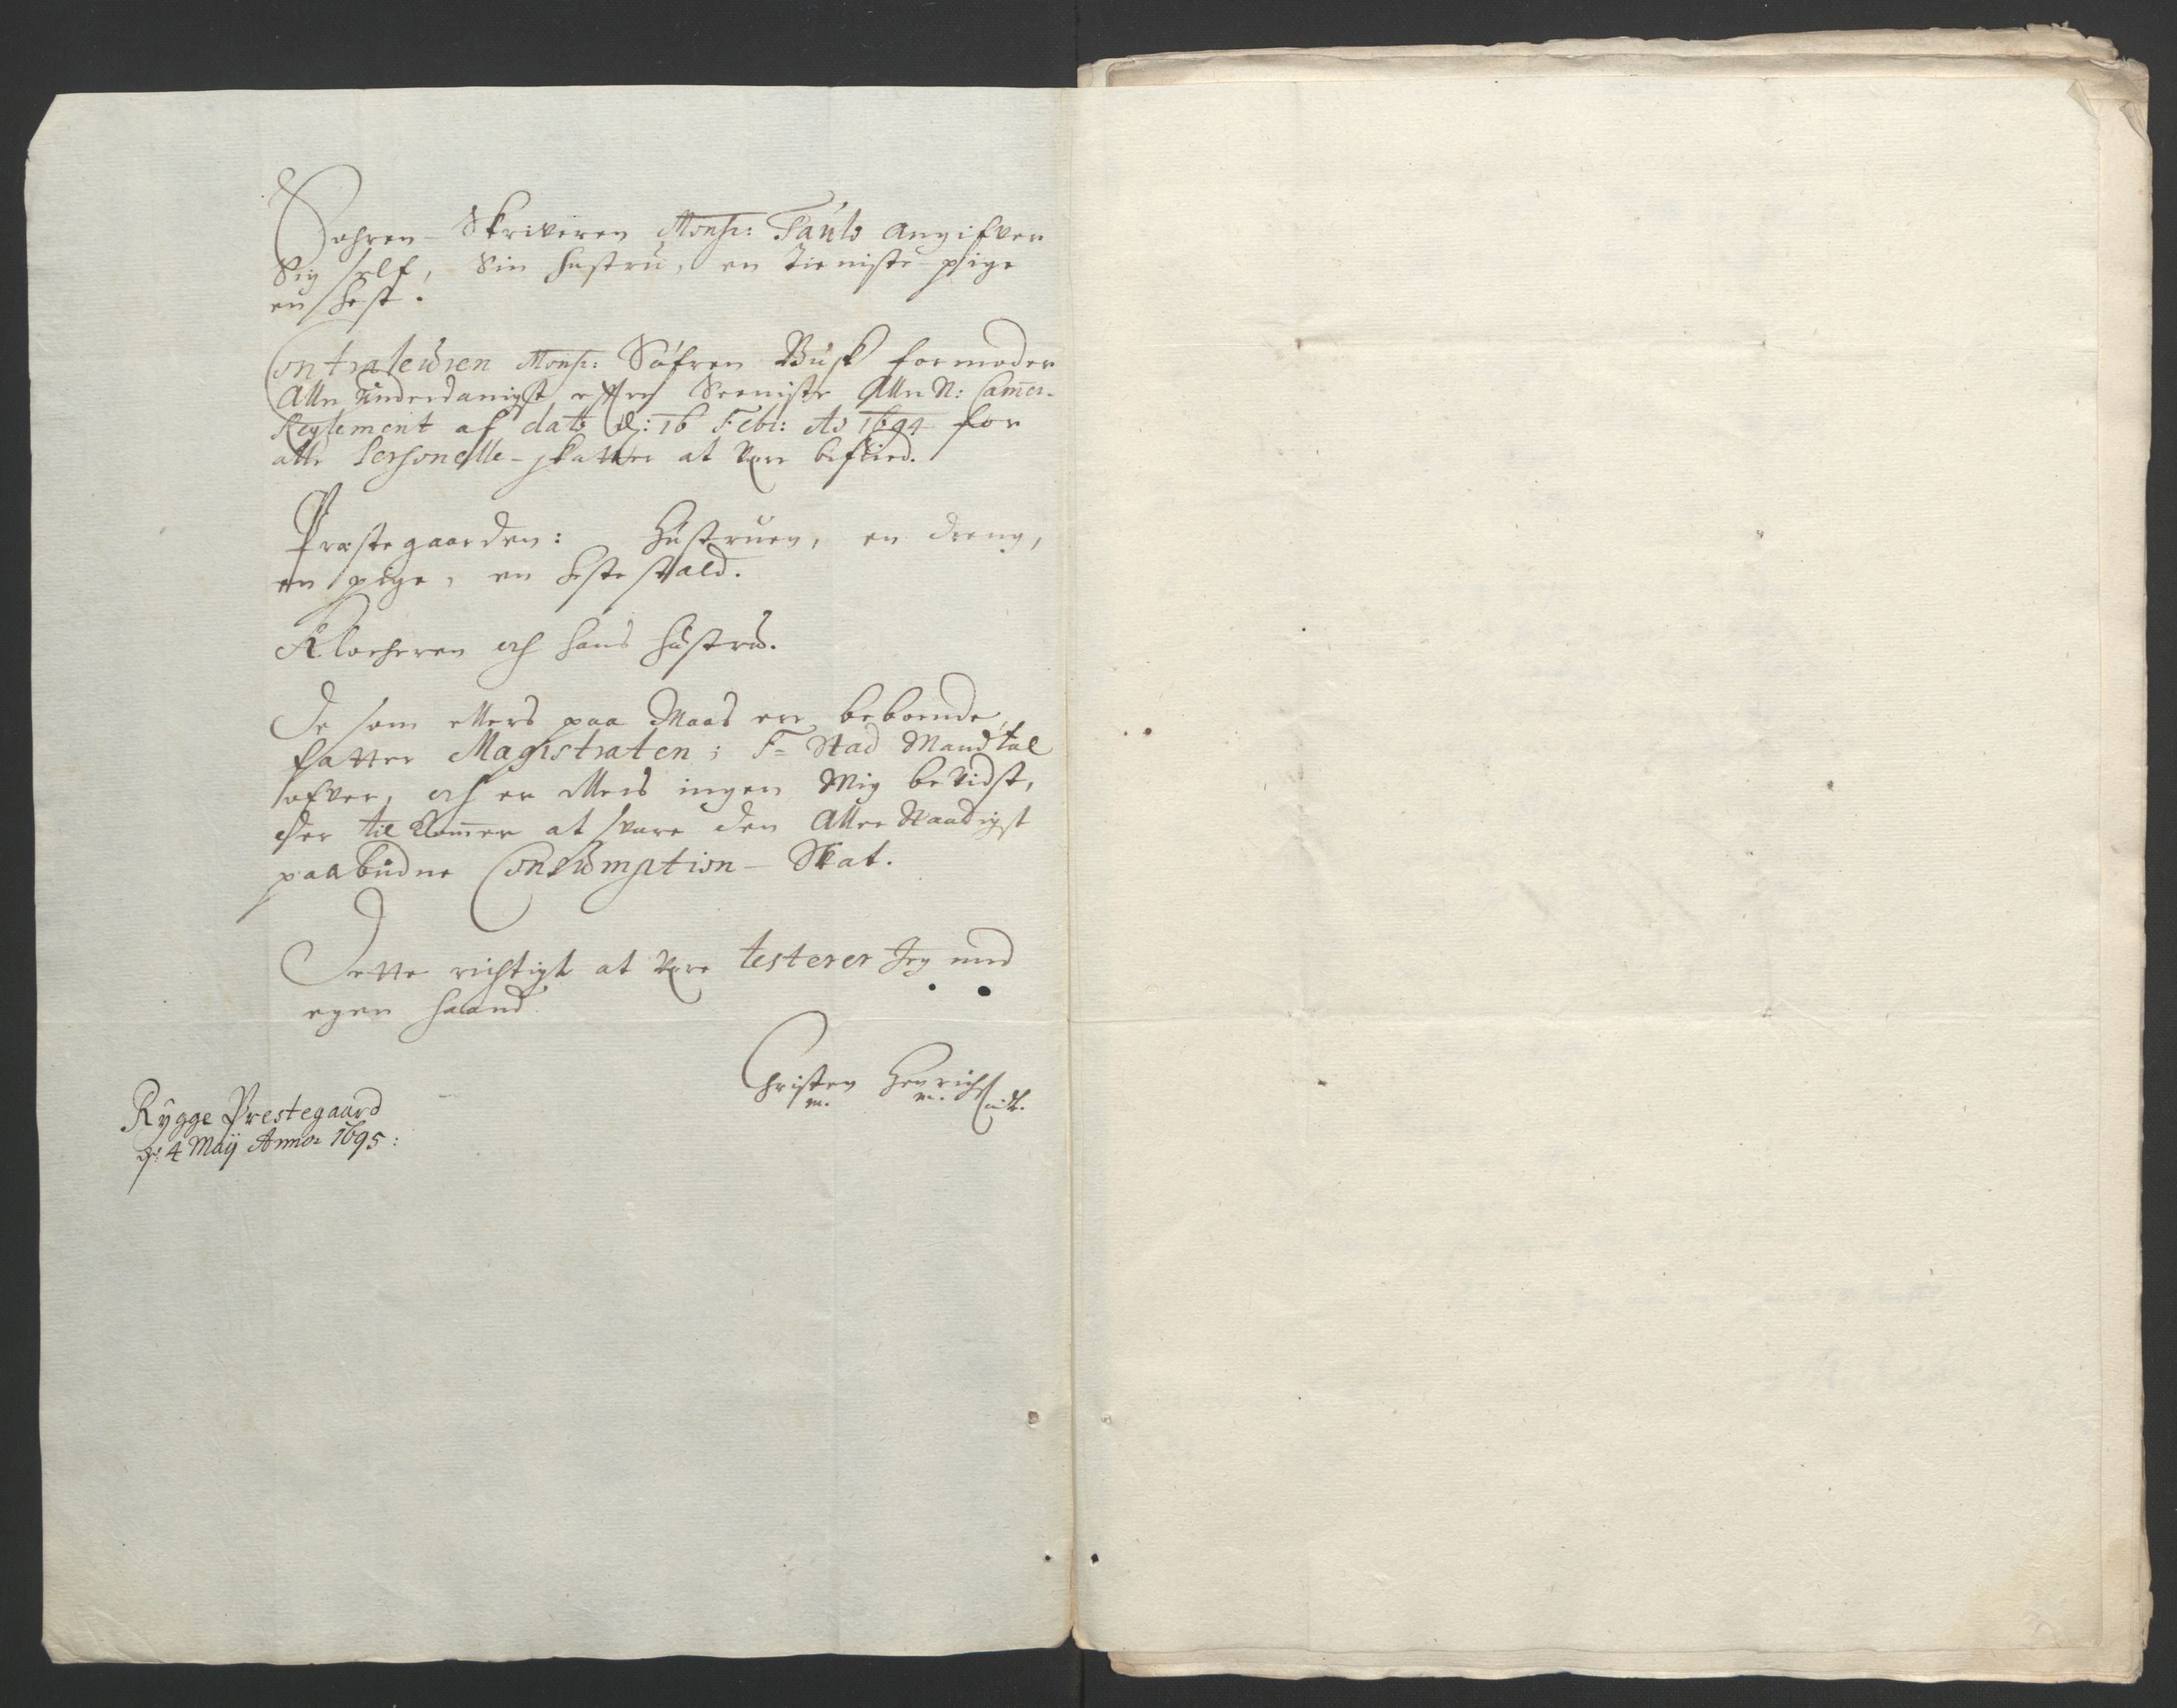 Sohren-Skriveren Monsr: Pauls angifver
Sig self, Sin hustru, en tieniste-pige
en hest.
Contraleuren Monsr: Søfren Busk formoder
Aller underdanigst efter Seeniste Aller N: Camer-
Reglement af dato d: 16 Febr: Ao 1694 for
alle Personelle-skatter at være befried.
Præstegaarden: Hustruen, en dreng,
en pige, en heste stald.
Klocheren och hans hustru.
De som ellers paa Moss ere beboende,
fatter Magistraten i F= Stad Mandtal
ofver, och er ellers ingen mig bevidst,
der tilkommer at svare den Aller Naadigst
paabudne Consumption-Skat.
Dette richtigt at være testerer Jeg med
egen haand
Christen Henrichs
m. m.
Rygge Prestegaard
d: 4 Maij Anno 1695: